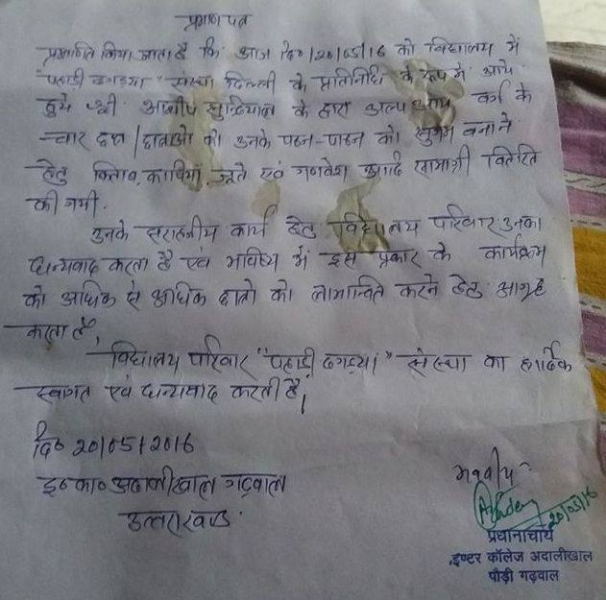 प्रमाण पत्र
प्रमाणित किया जाता है कि आज दि० 20/05/16 को विद्यालय में
"पहाड़ी दगड़्या" संस्था दिल्ली के प्रतिनिधि के रूप में आये
हुये श्री सुन्द्रियाल के द्वारा अल्प आय वर्ग के
चार छात्र/छात्राओं को उनके पठन-पाठन को सुगम बनाने
हेतु किताब, कापियां, जूते एवं गणवेश आदि सामाग्री वितरित
की गयी.
उनके सराहनीय कार्य हेतु विद्यालय परिवार उनका
धन्यवाद करता है एवं भविष्य में इस प्रकार के कार्यक्रम
को अधिक से अधिक छात्रो को लाभान्वित करने हेतु आग्रह
करता है,
विद्यालय परिवार "पहाड़ी दगड़्या" संस्था का हार्दिक
स्वागत एवं धन्यवाद करती है।
दि० 20/05/2016
इ० का० अदालीखाल गढ़वाल
उत्तराखण्ड.
भवदीय
20/05/16
प्रधानाचार्य
इण्टर कॉलेज अदालीखाल
पौड़ी गढ़वाल